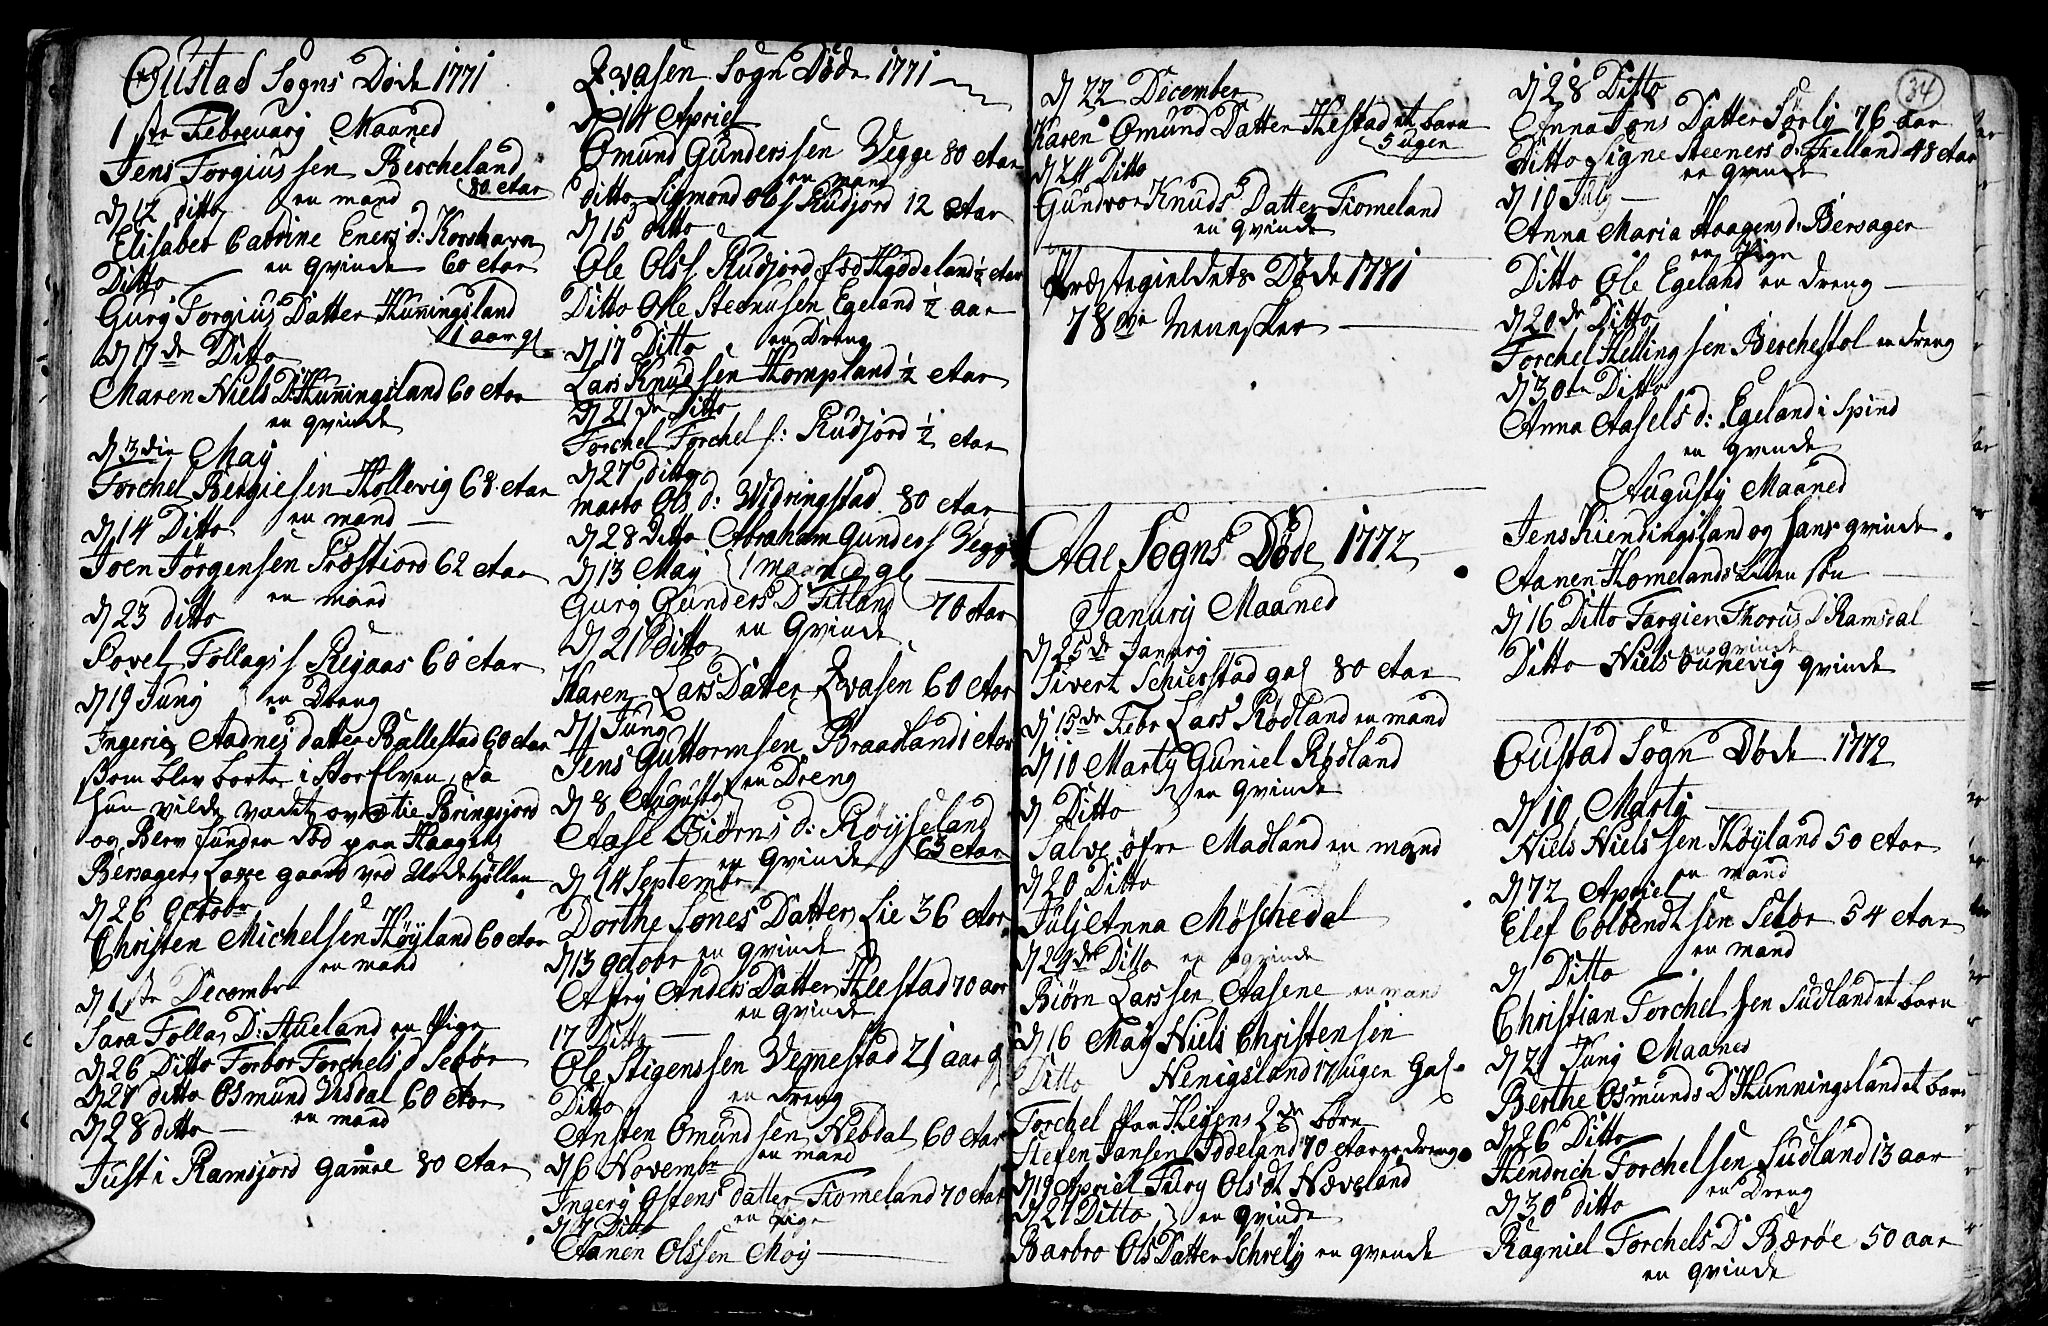 Oustad Sogns Døde 1771
1ste Februarij Maaned
Jens Torgiussen Bercheland
en mand 80 Aar
dj 12 ditto
Elisabet Catrine Eners d: Korshavn
Ditto en qvinde 60 Aar
Gurj Torgius Datter Hunningsland
1 aar gl
dj 17de Ditto
Maren Niels D: Hunningsland 60 Aar
en qvinde
dj 3die Maij
Torchel Bergiesen Hollevig 68 Aar
dj 14 Ditto en mand
Joen Jørgensen Prestiord 62 Aar
en mand
dj 23 ditto
Povel Follags s Rejaas 60 Aar
dj 19 Junj en Dreng
Ingerj Aadnes datter Ballestad 60 Aar
som blev borte i StorElven, da
hun vilde vadet over tie Bringsjord
og Blev funden død paa Haagens
Bersagers Laxe gaard ved
dj 26 Octobr
Christen Michelsen Høyland 60 Aar
en mand
dj 1ste Decembr
Sara Follas D: Stueland en Pige
dj 26 Ditto Torbor Torchels d Seböe
dj 27 ditto Osmund Udsdal 60 Aar
dj 28 ditto en mand
Just i Ramsjord gamel 80 Aar
Qvasen Sogn Døde 1771
dj 14 Apriel
Omund Gunderssen Vegge 80 Aar
en mand
ditto Sigmond Ols s Rudjord 12 Aar
dj 15 ditto
Ole Ols s. Rudjord fød Høddeland ½ Aar
Ditto Olle Steenusen Egeland ½ aar
dj 17 Ditto en Dreng
Lars Knudsen Kompland ½ Aar
dj 21de Ditto
Torchel Torchel s: Rudjord ½ Aar
dj 27 ditto
marto Ols d: Widringstad 80 Aar
dj 28 Ditto Abraham Gunders s Vegge
dj 13 Maj 1 maaned gl
Gurj Gunders D Titland 70 Aar
dj 21 ditto en Qvinde
Karen Lars Datter Qvasen 60 Aar
dj 1 Junj
Jens Guttormsen Braadland 1 Aar
dj 8 Augustj en Dreng
Aase Biørns d: Røijseland
en Qvinde 65 Aar
dj 14 Septembr
Dorthe Sønes Datter Lie 36 Aar
dj 13 octobr en qvinde
Astrj Anders Datter Heestad 70 aar
en qvinde
17 Ditto
Ole Stigenssen Vemestad 21 aar gl
Ditto en dreng
Ansten Omundsen Nebdal 60 Aar
dj 6 Novembr en mand
Ingerj Ostens datter Fiomeland 70 Aar
dj 7 Ditto en pige
Aanen Olssen Moij
dj 22 December
Karen Omund Datter Hestad et barn
5 ugen
dj 24 Ditto
Gundvor Knuds Datter Fiomeland
en qvinde
Præstegieldets Døde 1771
78ve Mennesker
Aae Sogns Døde 1772
Janurj Maaned
dj 25de Janurj
Sivert Schierstad gal 80 Aar
dj 15de Febr Lars Rødland en mand
dj 10 Martj Guniel Rødland
en qvinde
dj Ditto
Salve øfre Madland en mand
dj 20 Ditto
Julj Anna Møschedal
dj 29de Ditto en qvinde
Biørn Larssen Aasene en mand
dj 16 Maij Niels Christensen
Ditto Henigsland 17 ugen Gal.
Torchel 2de börn
Stefen Jansen 70 Aar
dj 19 Apriel Ols dt Næveland
dj 21 Ditto en qvinde
Barbro Ols Datter Schrelj en qvende
34
dj 28 Ditto
Anna Jons Datter Sørlj 76 Aar
Ditto Signe Steeners d: Fielland 48 Aar
en qvinde
dj 10 Julj
Anna Maria Haagens d: Bersager
en Pige
Ditto Ole Egeland en dreng
dj 20de Ditto
Torchel Hellingsen Berchestol en dreng
dj 30te Ditto
Anna Aasels d: Egeland i Spind
en qvende
Augustj Maaned
Jens Kiendingsland og hans qvinde
Aanen Homelands Liden søn
dj 16 Ditto Targier Thorus D Ramsdal
en qvinde
Ditto Niels Ounevig qvinde
Oustad Sogn Døde 1772
dj 10 Martj
Niels Nielssen Høyland 50 Aar
en mand
dj 72 Apriel
Elef Colbendtsen Seböe 54 Aar
en mand
dj Ditto
Christian Torchelsen Sudland et barn
dj 21 Junj Maaned
Berthe Osmunds D Hunningsland et barn
dj 26 Ditto
Hendrich Torchelsen Sudland 13 aar
en Dreng
dj 30 ditto
Ragniel Torchels D Bærøe 50 aar
en qvinde